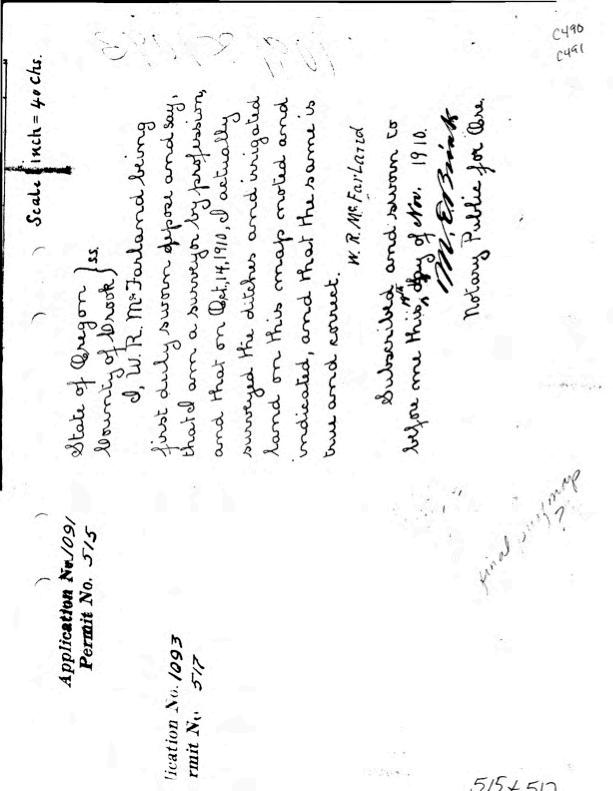 C490
C491
Scale 1 inch = 40 Chs.
State of Oregon } ss.
County of Crook
I, W. R. McFarland being
first duly sworn depose and say,
that I am a surveyor by profession,
and that on Oct, 14, 1910, I actually
surveyed the ditches and irrigated
land on this map noted and
indicated, and that the same is
true and correct.
W. R. McFarland
Subscribed and sworn to
before me this day of Nov. 1910.
Notary Public for Ore.
Application No. 1091
Permit No. 515
lication No. 1093
rmit No 517
final map
?
515 & 517